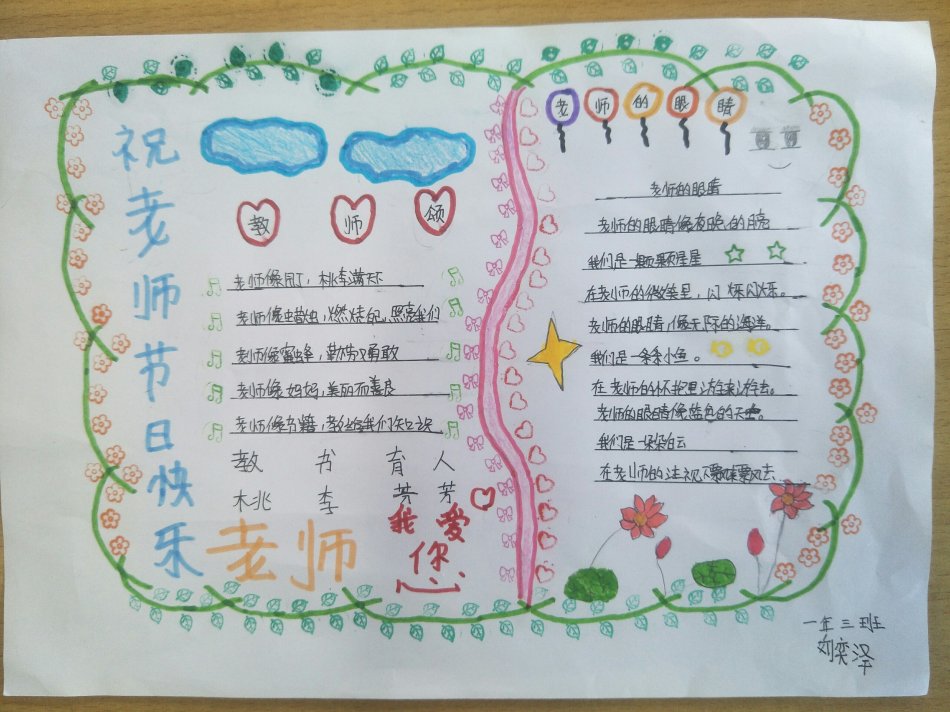 祝老师节日快乐
教师颂
老师像园丁，桃李满天下
老师像蜡烛，燃烧自己，照亮我们
老师像蜜蜂，勤劳又勇敢
老师像妈妈，美丽而善良
老师像书籍，教给我们知识
教书育人
桃李芳芳
老师
我爱
你
老师的眼睛
老师的眼睛
老师的眼睛像夜晚的月亮
我们是一颗颗星星
在老师的微笑里，闪烁闪烁。
老师的眼睛，像无际的海洋。
我们是一条条小鱼。
在老师的怀抱里游来游去。
老师的眼睛像蓝色的天空。
我们是一朵朵白云
在老师的注视下飘来飘去
一年三班
刘奕泽